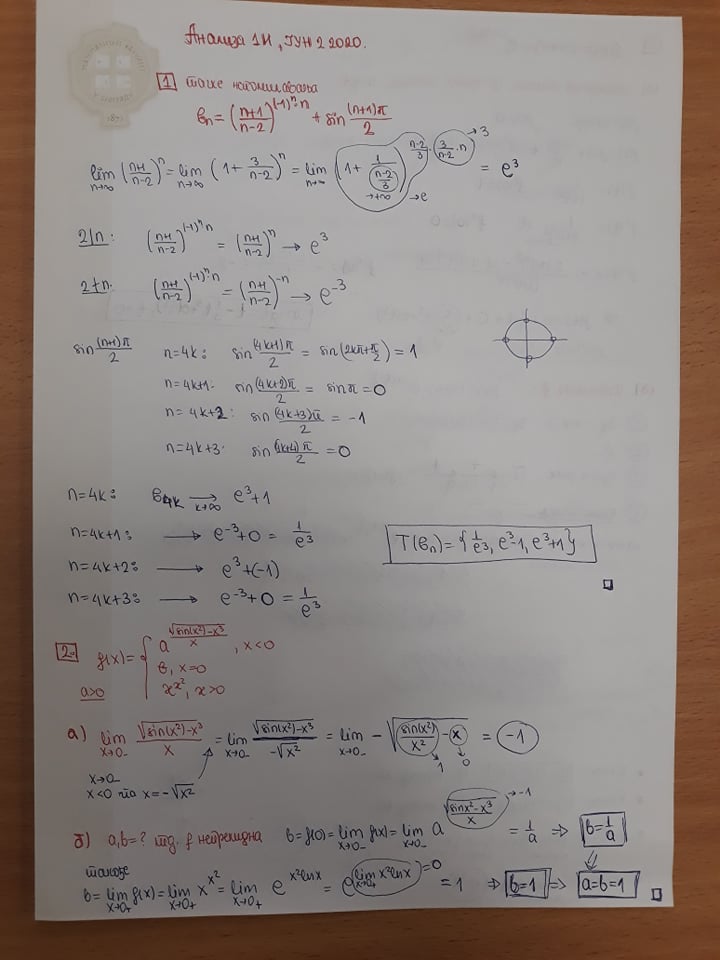 Анализа 1И, ЈУН 2 2020.
1 тачке нагомилавања
bₙ = ((n+1)/(n-2))^((-1)ⁿ·n) + sin((n+1)π/2)
lim_{n→∞} ((n+1)/(n-2))ⁿ = lim_{n→∞} (1 + 3/(n-2))ⁿ = lim_{n→∞} (1 + 1/((n-2)/3) →+∞)^((n-2)/3 · 3/(n-2) · n) →e →3 = e³
2|n: ((n+1)/(n-2))^((-1)ⁿ·n) = ((n+1)/(n-2))ⁿ → e³
2∤n: ((n+1)/(n-2))^((-1)ⁿ·n) = ((n+1)/(n-2))⁻ⁿ → e⁻³
sin((n+1)π/2) n=4k: sin((4k+1)π/2) = sin(2kπ+π/2) = 1
n=4k+1: sin((4k+2)π/2) = sin π = 0
n=4k+2: sin((4k+3)π/2) = -1
n=4k+3: sin((4k+4)π/2) = 0
n=4k: b₄ₖ →_{k→∞} e³+1
n=4k+1: → e⁻³+0 = 1/e³
T(bₙ) = {1/e³, e³-1, e³+1}
n=4k+2: → e³+(-1)
n=4k+3: → e⁻³+0 = 1/e³
2. f(x) = { a^(√(sin(x²)-x³)/x), x<0
b, x=0
a>0 x^(x²), x>0
а) lim_{x→0-} √(sin(x²)-x³)/x = lim_{x→0-} √(sin(x²)-x³)/(-√x²) = lim_{x→0-} -√(sin(x²)/x² - x) = -1
1 0
x→0-
x<0 па x=-√x²
б) a,b=? тд. f непрекидна b=f(0)=lim_{x→0-} f(x)=lim_{x→0-} a^(√(sinx²-x³)/x) →-1 = 1/a ⇒ b=1/a
такође
b=lim_{x→0+} f(x)=lim_{x→0+} x^(x²)=lim_{x→0+} e^(x²lnx) = e^(lim_{x→0+} x²lnx) =0 = 1 ⇒ b=1 ⇒ a=b=1